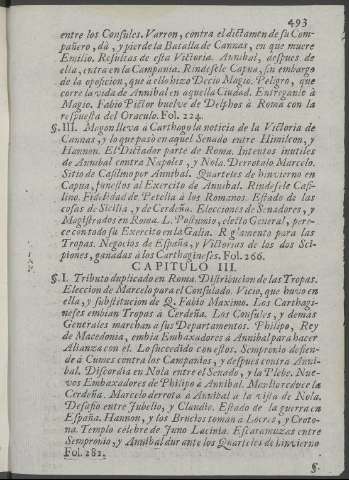 493
entre los Consules. Varron, contra el dictamen de su Com-
pañero, dà, y pierde la Batalla de Cannas, en que muere
Emilio. Resultas de esta Victoria. Annibal, despues de
ella, entra en la Campania. Rindesele Capua, sin embargo
de la oposicion, que à ello hizo Decio Magio. Peligro, que
corre la vida de Annibal en aquella Ciudad. Entregante à
Magio. Fabio Pictor buelve de Delphos à Roma con la
respuesta del Oraculo. Fol. 224.
§. III. Magon lleva à Carthago la noticia de la Victoria de
Cannas, y lo que pasò en aquel Senado entre Himilcon, y
Hannon. El Dictador parte de Roma. Intentos inutiles
de Annibal contra Napoles, y Nola. Derrotalo Marcelo.
Sitio de Casilino por Annibal. Quarteles de hinvierno en
Capua, funestos al Exercito de Annibal. Rindesele Casi-
lino. Fidelidad de Petelia à los Romanos. Estado de las
cosas de Sicilia, y de Cerdeña. Elecciones de Senadores, y
Magistrados en Roma. L. Postumio, electo General, pere-
ce con todo su Exercito en la Galia. Reglamento para las
Tropas. Negocios de España, y Victorias de los dos Sci-
piones, ganadas à los Carthagineses. Fol. 266.
CAPITULO III.
§. I. Tributo duplicado en Roma. Distribucion de las Tropas.
Eleccion de Marcelo para el Consulado. Vicio, que huvo en
ella, y substitucion de Q. Fabio Maximo. Los Carthagi-
neses embian Tropas à Cerdeña. Los Consules, y demàs
Generales marchan à sus Departamentos. Philipo, Rey
de Macedonia, embia Embaxadores à Annibal para hacer
Alianza con el. Lo succedido con estos. Sempronio defien-
de à Cumes contra los Campanios, y despues contra Anni-
bal. Discordia en Nola entre el Senado, y la Plebe. Nue-
vos Embaxadores de Philipo à Annibal. Manlio reduce la
Cerdeña. Marcelo derrota à Annibal à la vista de Nola.
Desafio entre Jubelio, y Claudio. Estado de la guerra en
España. Hannon, y los Brucios toman à Locres, y Croto-
na. Templo célebre de Juno Lacinia. Escaramuzas entre
Sempronio, y Annibal durante los Quarteles de hinvierno
Fol. 282.
§.